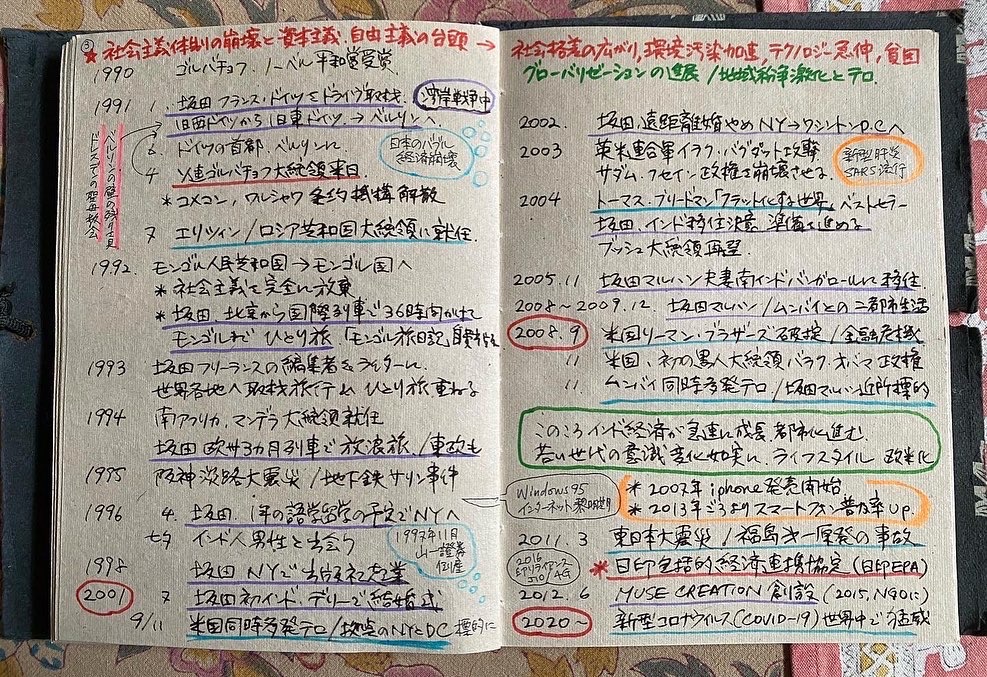 ③
★社会主義体制の崩壊と資本主義、自由主義の台頭→
1990 ゴルバチョフ、ノーベル平和賞受賞
1991 1. 坂田 フランス・ドイツをドライヴ取材 湾岸戦争中
旧西ドイツから旧東ドイツ→ベルリンへ
ドイツの首都、ベルリンに
4 ソ連ゴルバチョフ大統領来日
日本のバブル
経済崩壊
*コメコン、ワルシャワ条約機構解散
ベルリンの壁の残骸
ドレスデンの聖母教会
7 エリツィン/ロシア共和国大統領に就任
1992. モンゴル人民共和国→モンゴル国へ
*社会主義を完全に放棄
*坂田 北京から国際列車で36時間かけて
モンゴルまで ひとり旅 「モンゴル旅日記」
1993 坂田フリーランスの編集者&ライターに
世界各地へ取材旅行&ひとり旅重ねる
1994 南アフリカ、マンデラ大統領就任
坂田 欧州3カ月列車で放浪旅/東欧も
1995 阪神淡路大震災/地下鉄サリン事件
Windows95
インターネット黎明期
1996 4. 坂田、1年の語学留学の予定でNYへ
七夕 インド人男性と出会う
1997年11月
山一證券
倒産
1998 坂田 NYで出版社を起業
2001 7 坂田初インド、デリーで結婚式
9/11 米国同時多発テロ/拠点のNYとDC標的に
社会格差の広がり,環境汚染加速,テクノロジー急伸,貧困
グローバリゼーションの進展/地域紛争激化とテロ
2002. 坂田、遠距離婚やめNY→ワシントンD.C.へ
2003 英米連合軍イラク・バグダット攻撃
サダム・フセイン政権を崩壊させる
新型肺炎
SARS流行
2004 トーマス・フリードマン「フラット化する世界」ベストセラー
坂田 インド移住決意 準備を進める
ブッシュ大統領再選
2005.11 坂田マルハン夫妻南インド・バンガロールに移住
2008〜2009.12 坂田マルハン/ムンバイとの二都市生活
2008.9 米国リーマン・ブラザーズ破綻/金融危機
11 米国、初の黒人大統領バラク・オバマ政権
11 ムンバイ同時多発テロ/坂田マルハン近所標的
このころインド経済が急速に成長、都市化進む
若い世代の意識変化如実に、ライフスタイル 欧米化
*2007年 iphone発売開始
*2013年ごろよりスマートフォン普及率UP.
2011.3 東日本大震災/福島第一原発の事故
2016
リライアンス
JIO/4G
*日印包括的経済連携協定(日印EPA)
2012.6 MUSE CREATION創設(2015,NGOに)
2020〜 新型コロナウイルス(COVID-19)世界中で猛威